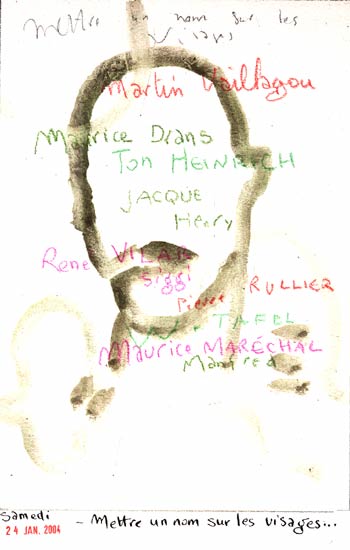 Mettre un nom sur les
visages
Martin Vaillagou
Maurice Dians
Ton HEINRICH
JACQUE
Henry
Rene VILAR
Siggi
Pierre RULLIER
TAFEL
Maurice MARÉCHAL
Manfred
Samedi
24 JAN. 2004
- Mettre un nom sur les visages...